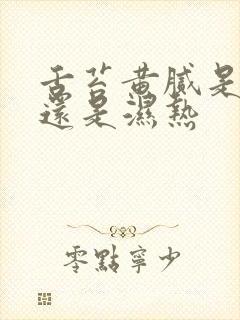 舌苔黄膩是
還是濕熱
零點寧少